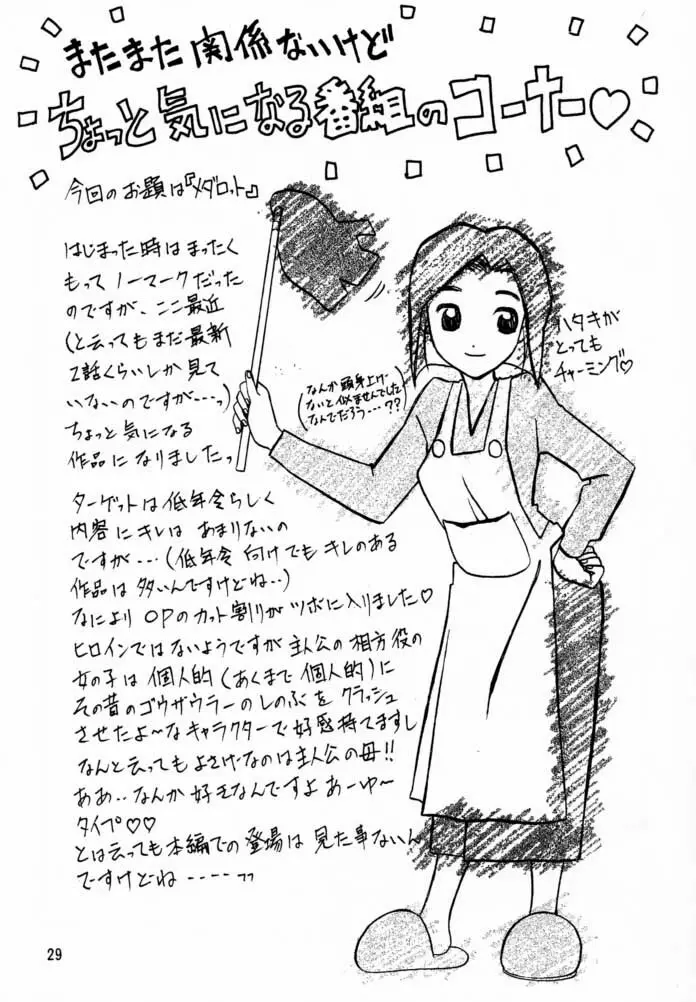 またまた関係ないけど
ちょっと気になる番組のコーナー♡
今回のお題は『メダロット』
はじまった時はまったく
もってノーマークだった
のですが、ここ最近
(と云ってもまだ最新
2話くらいしか見て
いないのですが…っ)
ちょっと気になる
作品になりましたっ
ハタキが
とっても
チャーミング♡
(なんか頭身上げ
ないと似ませんでした
なんでだろう…??)
ターゲットは低年令らしく
内容にキレはあまりないの
ですが…(低年令向けでもキレのある
作品は多いんですけどね‥)
なによりOPのカット割りがツボに入りました♡
ヒロインではないようですが主人公の相方役の
女の子は個人的(あくまで個人的)に
その昔のゴウザウラーのしのぶをクラッシュ
させたよ〜なキャラクターで好感持てますし
なんと云ってもよさげなのは主人公の母!!
ああ‥なんか好きなんですよあーゆ〜
タイプ♡♡
とは云っても本編での登場は見た事ないん
ですけどね----っっ
29